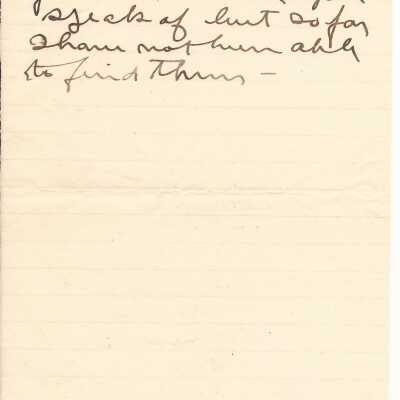 speak of but so far
I have not been able
to find them —